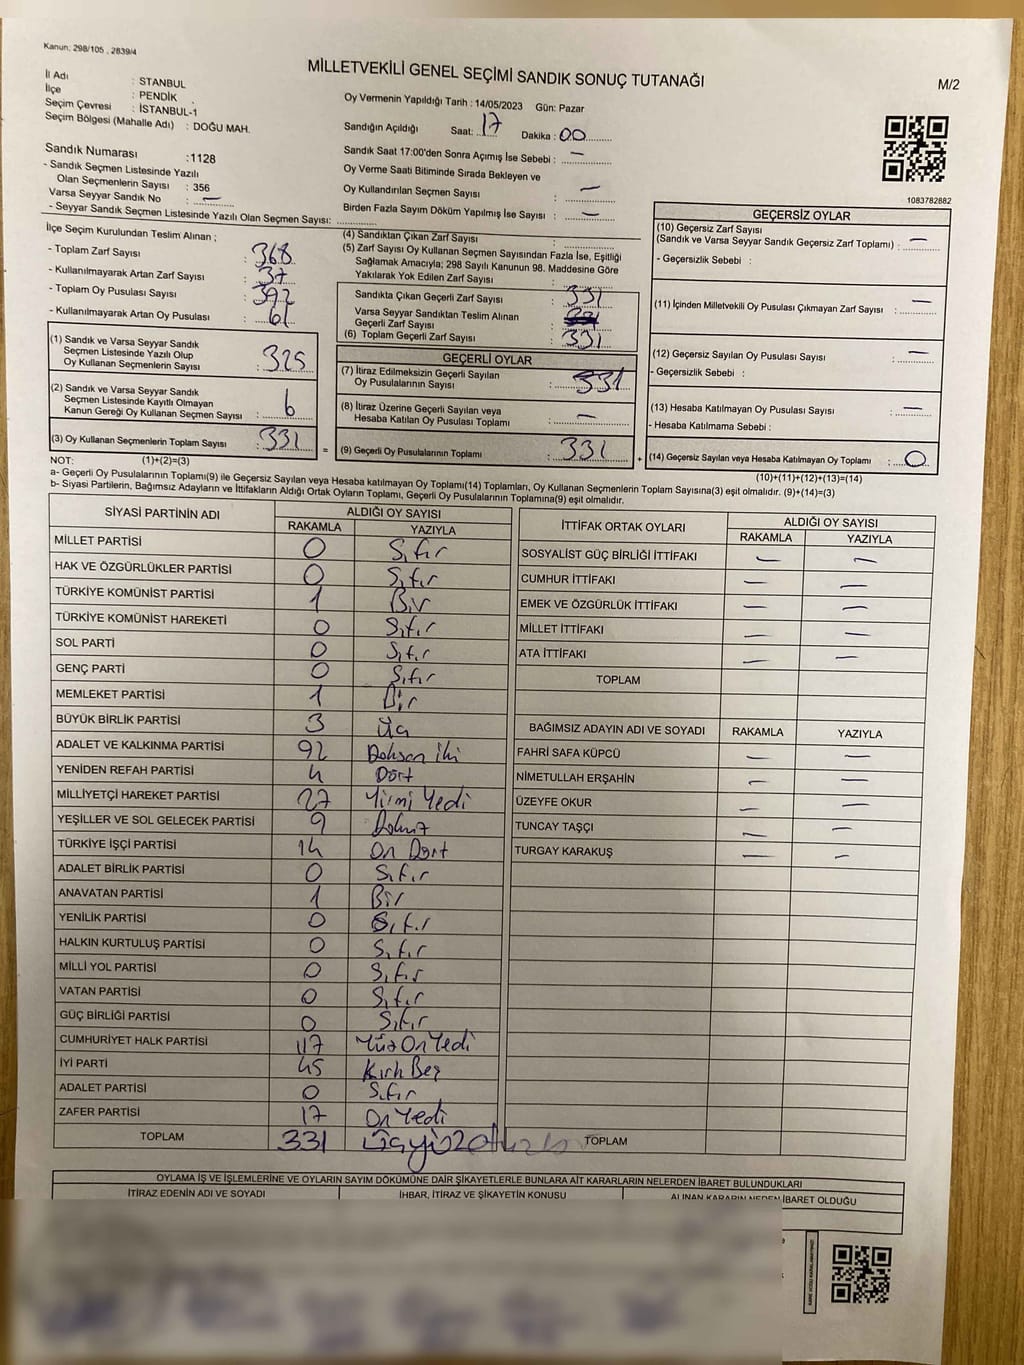 Kanun; 298/105 , 2839/4
MİLLETVEKİLİ GENEL SEÇİMİ SANDIK SONUÇ TUTANAĞI
M/2
İl Adı : STANBUL
İlçe : PENDİK
Seçim Çevresi : İSTANBUL-1
Seçim Bölgesi (Mahalle Adı) : DOĞU MAH.
Sandık Numarası :1128
- Sandık Seçmen Listesinde Yazılı
Olan Seçmenlerin Sayısı : 356
Varsa Seyyar Sandık No : —
- Seyyar Sandık Seçmen Listesinde Yazılı Olan Seçmen Sayısı:
Oy Vermenin Yapıldığı Tarih : 14/05/2023 Gün: Pazar
Sandığın Açıldığı Saat: 17 Dakika : 00
Sandık Saat 17:00'den Sonra Açımış İse Sebebi : —
Oy Verme Saati Bitiminde Sırada Bekleyen ve
Oy Kullandırılan Seçmen Sayısı : —
Birden Fazla Sayım Döküm Yapılmış İse Sayısı : —
1083782882
İlçe Seçim Kurulundan Teslim Alınan ;
- Toplam Zarf Sayısı : 368
- Kullanılmayarak Artan Zarf Sayısı : 37
- Toplam Oy Pusulası Sayısı : 392
- Kullanılmayarak Artan Oy Pusulası : 61
(1) Sandık ve Varsa Seyyar Sandık
Seçmen Listesinde Yazılı Olup
Oy Kullanan Seçmenlerin Sayısı : 325
(2) Sandık ve Varsa Seyyar Sandık
Seçmen Listesinde Kayıtlı Olmayan
Kanun Gereği Oy Kullanan Seçmen Sayısı : 6
(3) Oy Kullanan Seçmenlerin Toplam Sayısı : 331
(4) Sandıktan Çıkan Zarf Sayısı :
(5) Zarf Sayısı Oy Kullanan Seçmen Sayısından Fazla İse, Eşitliği
Sağlamak Amacıyla; 298 Sayılı Kanunun 98. Maddesine Göre
Yakılarak Yok Edilen Zarf Sayısı :
Sandıkta Çıkan Geçerli Zarf Sayısı : 331
Varsa Seyyar Sandıktan Teslim Alınan
Geçerli Zarf Sayısı :
(6) Toplam Geçerli Zarf Sayısı : 331
GEÇERLİ OYLAR
(7) İtiraz Edilmeksizin Geçerli Sayılan
Oy Pusulalarının Sayısı : 331
(8) İtiraz Üzerine Geçerli Sayılan veya
Hesaba Katılan Oy Pusulası Toplamı : —
= (9) Geçerli Oy Pusulalarının Toplamı : 331 +
GEÇERSİZ OYLAR
(10) Geçersiz Zarf Sayısı
(Sandık ve Varsa Seyyar Sandık Geçersiz Zarf Toplamı) : —
- Geçersizlik Sebebi :
(11) İçinden Milletvekili Oy Pusulası Çıkmayan Zarf Sayısı : —
(12) Geçersiz Sayılan Oy Pusulası Sayısı : —
- Geçersizlik Sebebi :
(13) Hesaba Katılmayan Oy Pusulası Sayısı : —
- Hesaba Katılmama Sebebi :
(14) Geçersiz Sayılan veya Hesaba Katılmayan Oy Toplamı : 0
NOT: (1)+(2)=(3)
(10)+(11)+(12)+(13)=(14)
a- Geçerli Oy Pusulalarının Toplamı(9) ile Geçersiz Sayılan veya Hesaba katılmayan Oy Toplamı(14) Toplamları, Oy Kullanan Seçmenlerin Toplam Sayısına(3) eşit olmalıdır. (9)+(14)=(3)
b- Siyasi Partilerin, Bağımsız Adayların ve İttifakların Aldığı Ortak Oyların Toplamı, Geçerli Oy Pusulalarının Toplamına(9) eşit olmalıdır.
SİYASİ PARTİNİN ADI ALDIĞI OY SAYISI
RAKAMLA YAZIYLA
MİLLET PARTİSİ 0 Sıfır
HAK VE ÖZGÜRLÜKLER PARTİSİ 0 Sıfır
TÜRKİYE KOMÜNİST PARTİSİ 1 Bir
TÜRKİYE KOMÜNİST HAREKETİ 0 Sıfır
SOL PARTİ 0 Sıfır
GENÇ PARTİ 0 Sıfır
MEMLEKET PARTİSİ 1 Bir
BÜYÜK BİRLİK PARTİSİ 3 Üç
ADALET VE KALKINMA PARTİSİ 92 Doksan iki
YENİDEN REFAH PARTİSİ 4 Dört
MİLLİYETÇİ HAREKET PARTİSİ 27 Yirmi Yedi
YEŞİLLER VE SOL GELECEK PARTİSİ 9 Dokuz
TÜRKİYE İŞÇİ PARTİSİ 14 On Dört
ADALET BİRLİK PARTİSİ 0 Sıfır
ANAVATAN PARTİSİ 1 Bir
YENİLİK PARTİSİ 0 Sıfır
HALKIN KURTULUŞ PARTİSİ 0 Sıfır
MİLLİ YOL PARTİSİ 0 Sıfır
VATAN PARTİSİ 0 Sıfır
GÜÇ BİRLİĞİ PARTİSİ 0 Sıfır
CUMHURİYET HALK PARTİSİ 117 Yüz On Yedi
İYİ PARTİ 45 Kırk Beş
ADALET PARTİSİ 0 Sıfır
ZAFER PARTİSİ 17 On Yedi
TOPLAM 331
İTTİFAK ORTAK OYLARI ALDIĞI OY SAYISI
RAKAMLA YAZIYLA
SOSYALİST GÜÇ BİRLİĞİ İTTİFAKI — —
CUMHUR İTTİFAKI — —
EMEK VE ÖZGÜRLÜK İTTİFAKI — —
MİLLET İTTİFAKI — —
ATA İTTİFAKI — —
TOPLAM
BAĞIMSIZ ADAYIN ADI VE SOYADI RAKAMLA YAZIYLA
FAHRİ SAFA KÜPCÜ — —
NİMETULLAH ERŞAHİN — —
ÜZEYFE OKUR — —
TUNCAY TAŞÇI — —
TURGAY KARAKUŞ — —
TOPLAM
OYLAMA İŞ VE İŞLEMLERİNE VE OYLARIN SAYIM DÖKÜMÜNE DAİR ŞİKAYETLERLE BUNLARA AİT KARARLARIN NELERDEN İBARET BULUNDUKLARI
İTİRAZ EDENİN ADI VE SOYADI İHBAR, İTİRAZ VE ŞİKAYETİN KONUSU ALINAN KARARIN NEDEN İBARET OLDUĞU